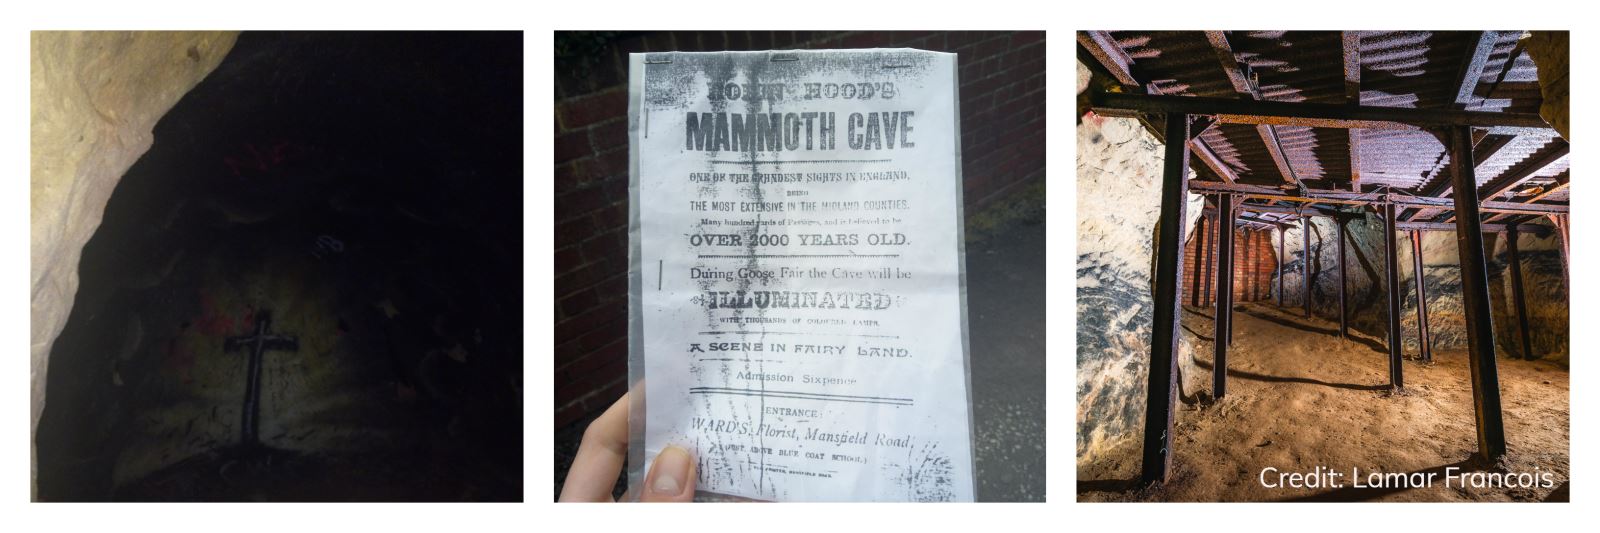 ROBIN HOOD'S
MAMMOTH CAVE
ONE OF THE GRANDEST SIGHTS IN ENGLAND,
BEING
THE MOST EXTENSIVE IN THE MIDLAND COUNTIES.
Many hundred yards of Passages, and is believed to be
OVER 2000 YEARS OLD.
During Goose Fair the Cave will be
ILLUMINATED
WITH THOUSANDS OF COLOURED LAMPS.
A SCENE IN FAIRY LAND.
Admission Sixpence
ENTRANCE:
WARD'S, Florist, Mansfield Road,
(JUST ABOVE BLUE COAT SCHOOL.)
Credit: Lamar Francois